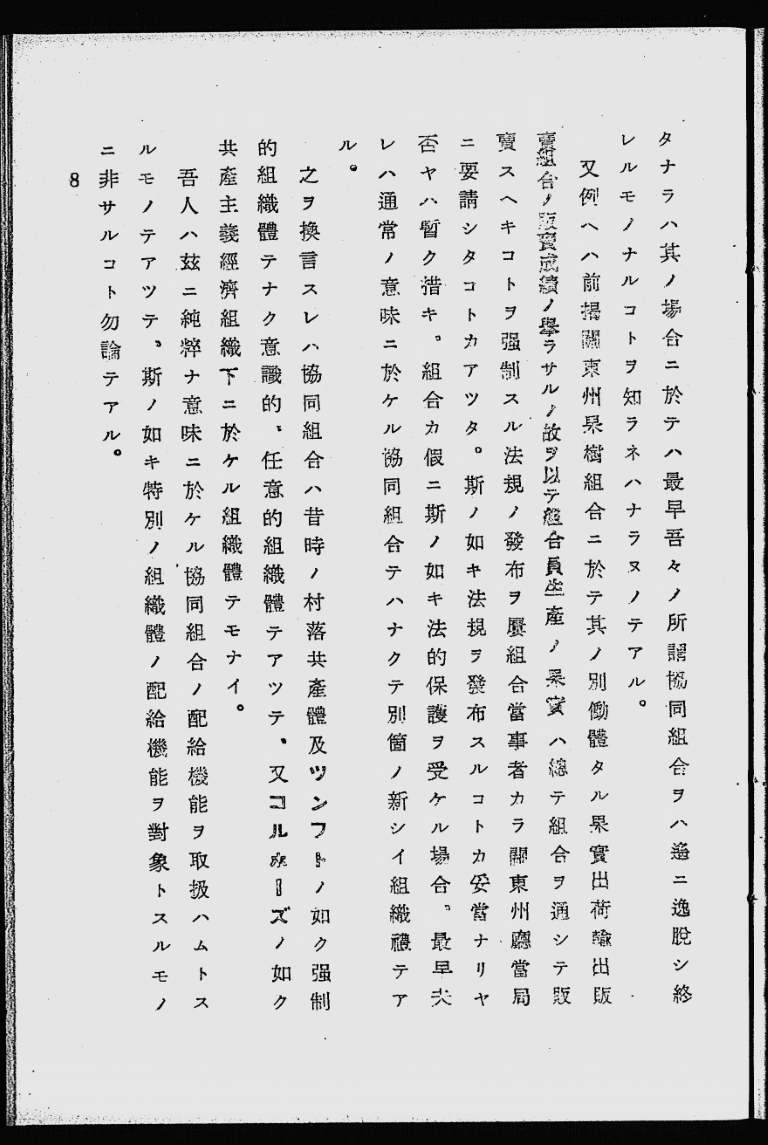 タナラハ其ノ場合ニ於テハ最早吾々ノ所謂協同組合ヲハ遙ニ逸脱シ終
レルモノナルコトヲ知ラネハナラヌノテアル。
又例ヘハ前揭關東州果樹組合ニ於テ其ノ別働體タル果實出荷輸出販
賣組合ノ販賣成績ノ擧ラサルノ故ヲ以テ組合員生產ノ果實ハ總テ組合ヲ通シテ販
賣スヘキコトヲ强制スル法規ノ發布ヲ屢組合當事者カラ關東州廳當局
ニ要請シタコトカアツタ。斯ノ如キ法規ヲ發布スルコトカ妥當ナリヤ
否ヤハ暫ク措キ。組合カ假ニ斯ノ如キ法的保護ヲ受ケル場合。最早夫
レハ通常ノ意味ニ於ケル協同組合テハナクテ別箇ノ新シイ組織體テア
ル。
之ヲ換言スレハ協同組合ハ昔時ノ村落共產體及ツンフトノ如ク强制
的組織體テナク意識的、任意的組織體テアツテ、又コルホーズノ如ク
共產主義經濟組織下ニ於ケル組織體テモナイ。
吾人ハ玆ニ純粹ナ意味ニ於ケル協同組合ノ配給機能ヲ取扱ハムトス
ルモノテアツテ、斯ノ如キ特別ノ組織體ノ配給機能ヲ對象トスルモノ
ニ非サルコト勿論テアル。
8